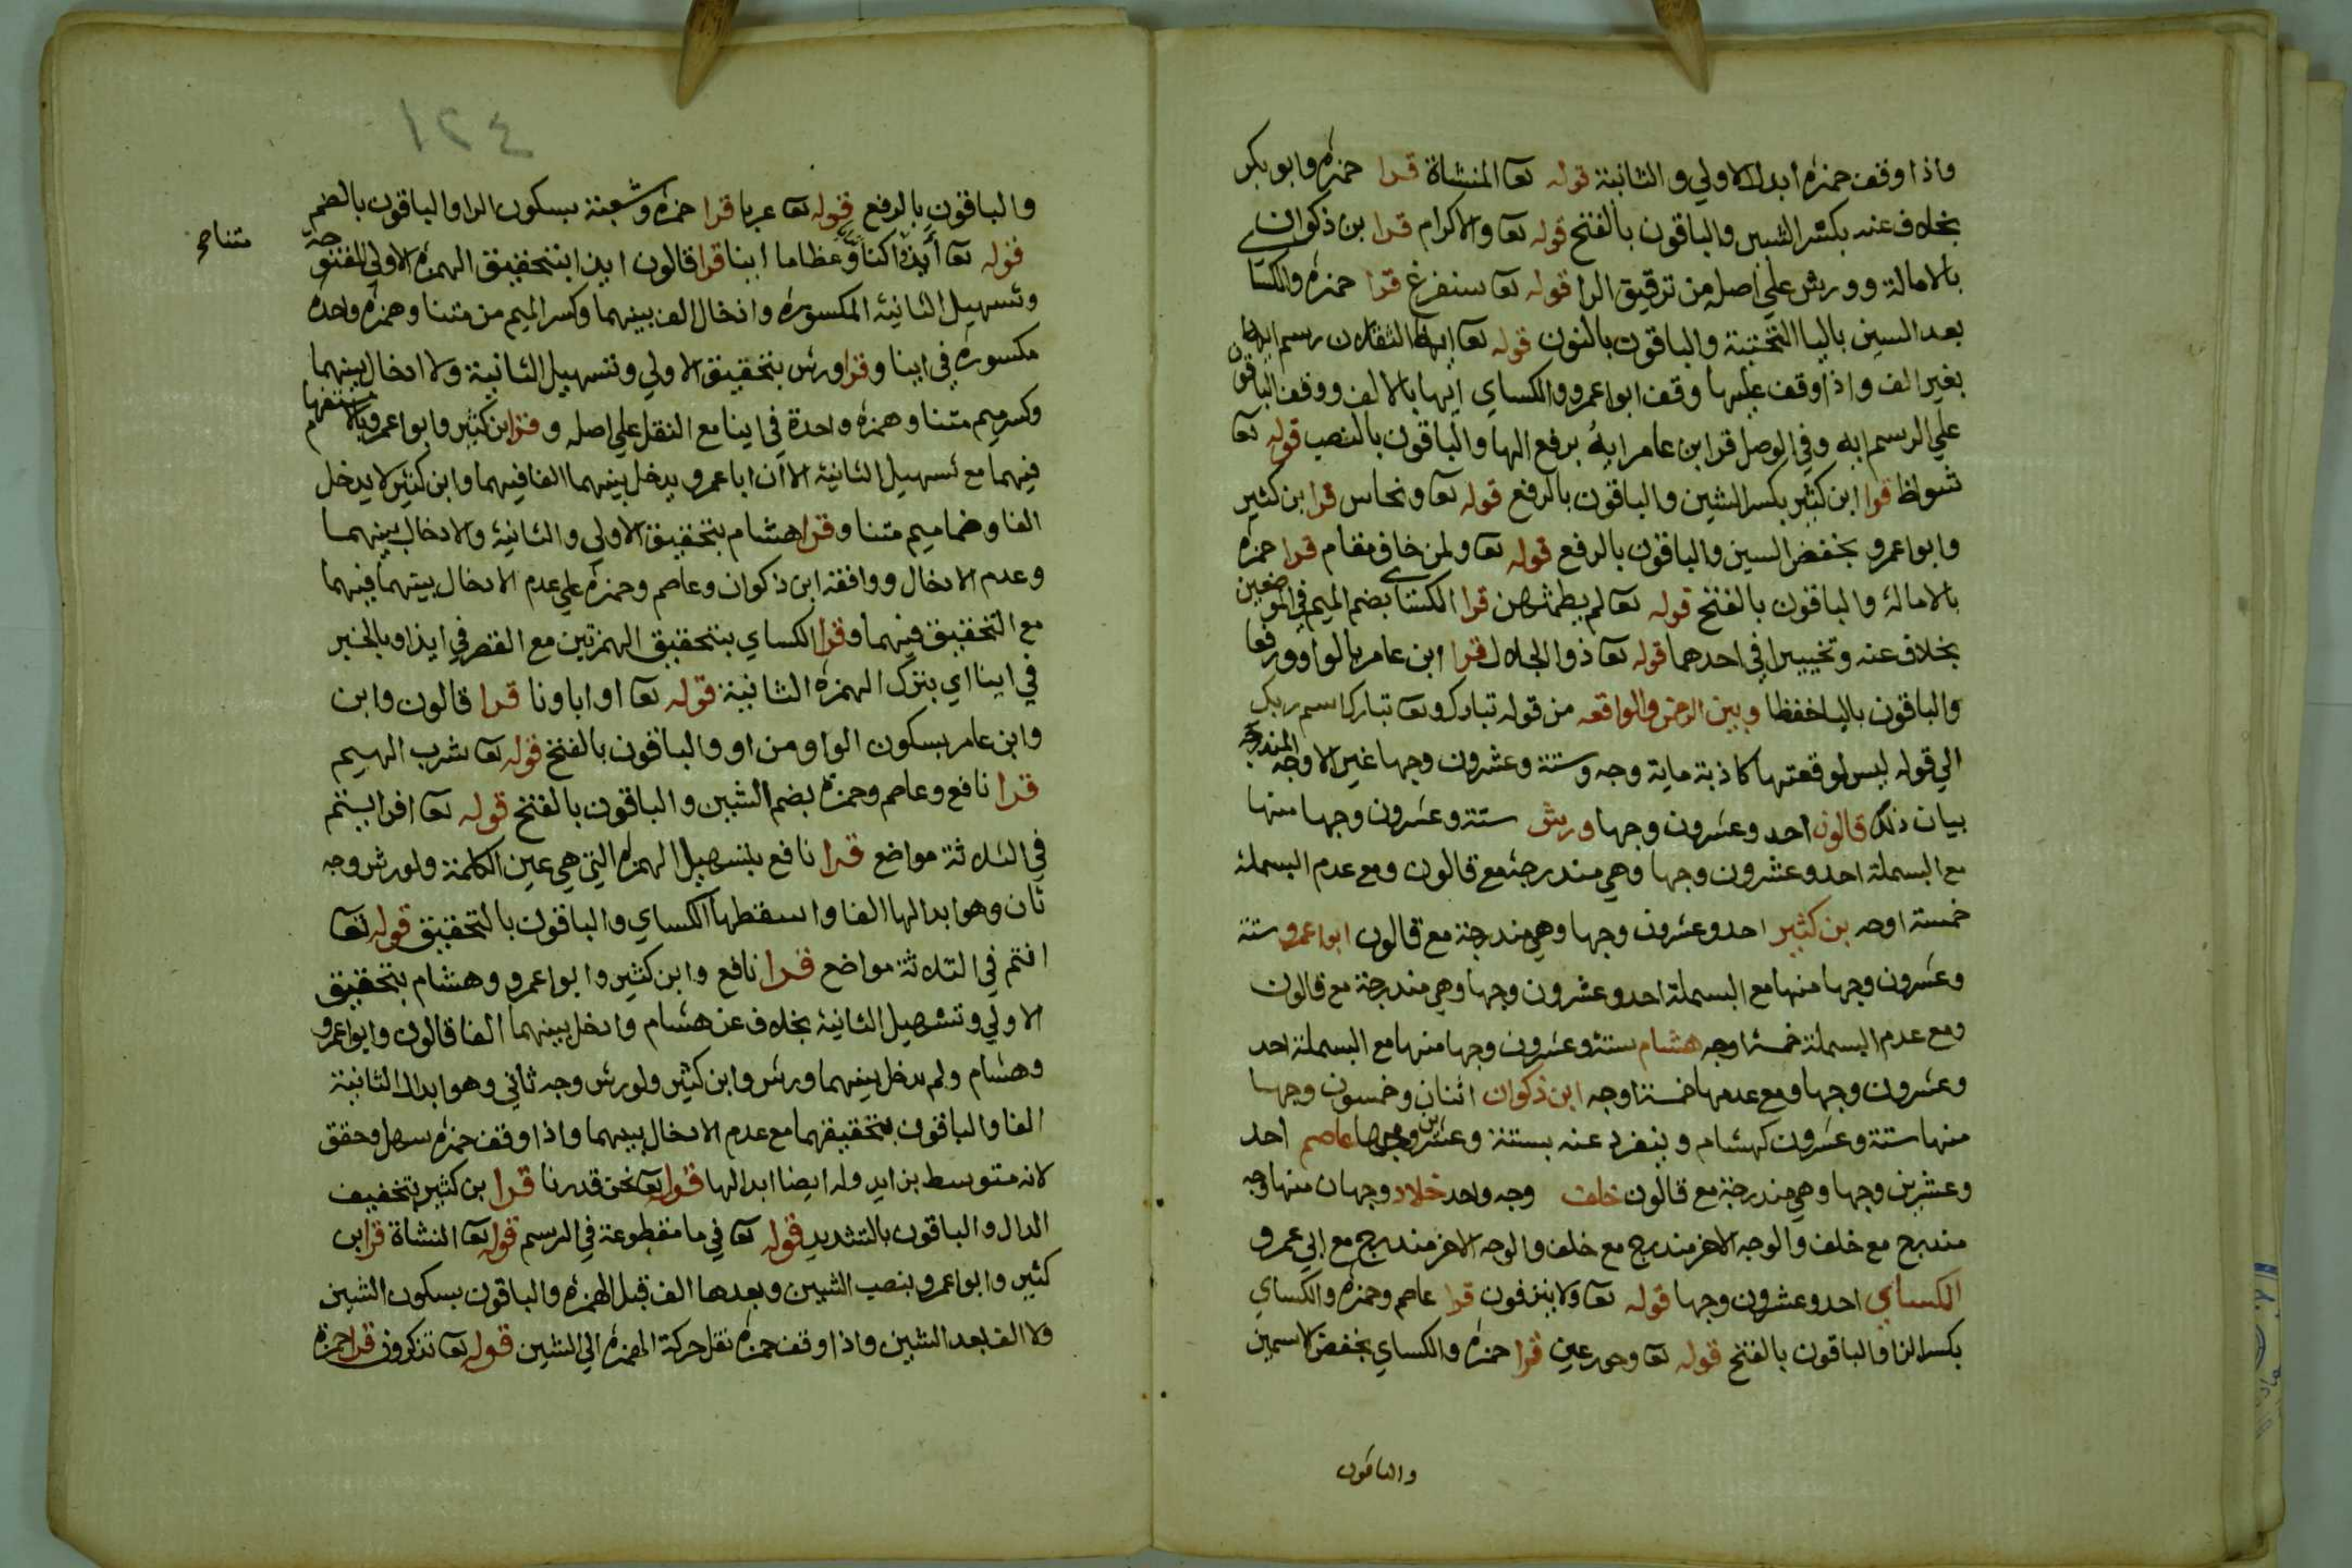 واذا وقف حمزه ابدل الاولي والثانية قوله تعا المنشاة قرا حمزه وابو بكر
بخلاف عنه بكسر الشين والباقون بالفتح قوله تعا والاكرام قرا بن ذكوان
بالامالة وورش علي اصله من ترقيق الرا قوله تعا سنفرغ قرا حمزه والكسا
بعد السين باليا التحتية والباقون بالنون قوله تعا ايها الثقلان رسم ايه
بغير الف واذا وقف عليها وقف ابوا عمرو والكساي ايها بالالف ووقف الباقون
علي الرسم ايه وفي الوصل قرا ابن عامر ايهُ برفع الها والباقون بالنصب قوله تعا
شواظ قرا ابن كثير بكسر الشين والباقون بالرفع قوله تعا ونحاس قرا بن كثير
وابوا عمرو بخفض السين والباقون بالرفع قوله تعا ولمن خاف مقام قرا حمزه
بالامالة والباقون بالفتح قوله تعا لم يطمثهن قرا الكساي بضم الميم في الموضعين
بخلاف عنه وتخييرا في احدهما قوله تعا ذو الجلال قرا ابن عامر بالواو ورفعا
والباقون باليا خفظا وبين الرحمن والواقعه من قوله تبارك وتعا تبارك اسم ربك
الي قوله ليس لوقعتها كاذبة ماية وجه وستة وعشرون وجها غير الاوجه المندرجة
بيان ذلك قالون احد وعشرون وجها ورش ستة وعشرون وجها منها
مع البسملة احد وعشرون وجها وهي مندرجة مع قالون ومع عدم البسملة
خمسة اوجه بن كثير احد وعشرون وجها وهي مندرجة مع قالون ابوا عمرو ستة
وعشرون وجها منها مع البسملة احد وعشرون وجها وهي مندرجة مع قالون
ومع عدم البسملة خمسة اوجه هشام ستة وعشرون وجها منها مع البسملة احد
وعشرون وجها ومع عدمها خمسة اوجه ابن ذكوان اثنان وخمسون وجها
منها ستة وعشرون كهشام وينفرد عنه بستة وعشرين وجها عاصم احد
وعشرين وجها وهي مندرجة مع قالون خلف وجه واحد خلاد وجهان منها وجه
مندرج مع خلف والوجه الاخر مندرج مع خلف والوجه الاخر مندرج مع ابي عمرو
الكساي احد وعشرون وجها قوله تعا ولا ينزفون قرا عاصم وحمزه والكساي
بكسر الزا والباقون بالفتح قوله تعا وحور عين قرا حمزه والكساي بخفض الاسمين
والباقون
٤٢١
والباقون بالرفع قوله تعا عربا قرا حمزه وشعبة بسكون الرا والباقون بالضم
قوله تعا أيذا كنا وعظاما اينا قرا قالون ايذا بتحقيق الهمزه الاولي المفتوحة
متنا صح
وتسهيل الثانية المكسوره وادخال الف بينهما وكسر الميم من متنا وهمزه واحده
مكسوره في اينا وقرا ورش بتحقيق الاولي وتسهيل الثانية ولا ادخال بينهما
وكسر ميم متنا وهمزه واحدة في اينا مع النقل علي اصله وقرا ابن كثير وابوا عمرو بالاستفهام
فيهما مع تسهيل الثانية الا ان ابا عمرو يدخل بينهما الفا فيهما وابن كثير لا يدخل
الفا وضما ميم متنا وقرا هشام بتحقيق الاولي والثانية والادخال بينهما
وعدم الادخال ووافقه ابن ذكوان وعاصم وحمزه علي عدم الادخال بينهما فيهما
مع التحقيق فيهما وقرا الكساي بتحقيق الهمزتين مع القصر في ايذا وبالخبر
في اينا اي بترك الهمزه الثانية قوله تعا او اباونا قرا قالون وابن
وابن عامر بسكون الواو من او والباقون بالفتح قوله تعا شرب الهيم
قرا نافع وعاصم وحمزه بضم الشين والباقون بالفتح قوله تعا افرايتم
في الثلاثة مواضع قرا نافع بتسهيل الهمزه التي هي عين الكلمة ولورش وجه
ثان وهو ابدالها الفا واسقطها الكساي والباقون بالتحقيق قوله تعا
انتم في الثلاثة مواضع قرا نافع وابن كثير وابوا عمرو وهشام بتحقيق
الاولي وتسهيل الثانية بخلاف عن هشام وادخل بينهما الفا قالون وابوا عمرو
وهشام ولم يدخل بينهما ورش وابن كثير ولورش وجه ثاني وهو ابدال الثانية
الفا والباقون بتحقيقهما مع عدم الادخال بينهما واذا وقف حمزه سهل وحقق
لانه متوسط بزايد وله ايضا ابدالها قوله تعا نحن قدرنا قرا بن كثير بتخفيف
الدال والباقون بالتشديد قوله تعا في ما مقطوعة في الرسم قوله تعا النشاة قرا بن
كثير وابوا عمرو بنصب الشين وبعدها الف قبل الهمزه والباقون بسكون الشين
ولا الف بعد الشين واذا وقف حمزه نقل حركة الهمزه الي الشين قوله تعا تذكرون قرا حمزة